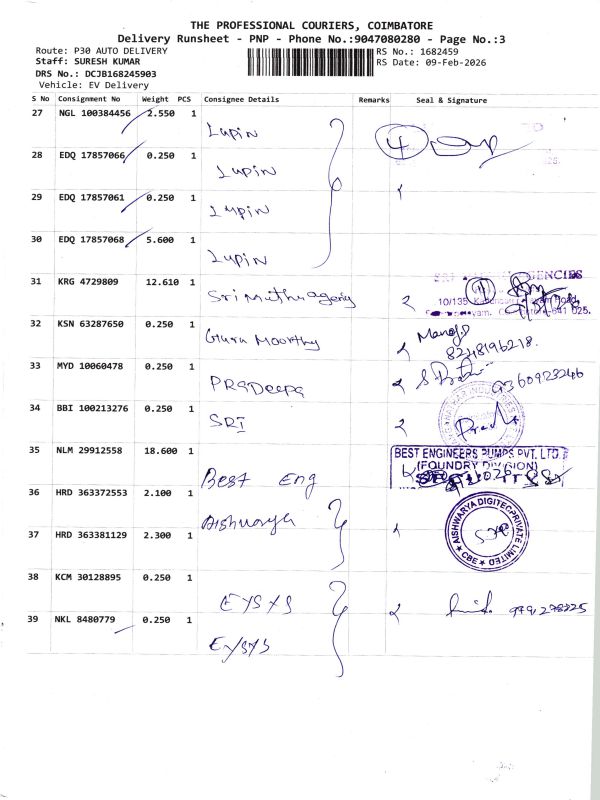 THE PROFESSIONAL COURIERS, COIMBATORE
Delivery Runsheet - PNP - Phone No.:9047080280 - Page No.:3
Route: P30 AUTO DELIVERY
RS No.: 1682459
Staff: SURESH KUMAR
RS Date: 09-Feb-2026
DRS No.: DCJB168245903
Vehicle: EV Delivery
S No Consignment No Weight PCS Consignee Details Remarks Seal & Signature
27 NGL 100384456 2.550 1
Lupin
4
28 EDQ 17857066 0.250 1
Lupin
29 EDQ 17857061 0.250 1
Lupin
30 EDQ 17857068 5.600 1
Lupin
31 KRG 4729809 12.610 1
Sri Muthu agency
SRI AGENCIES
10/135, Road,
641 025.
32 KSN 63287650 0.250 1
Guru Moorthy
Manoj
8248196218.
33 MYD 10060478 0.250 1
PRadeepa
9360923246
34 BBI 100213276 0.250 1
SRI
35 NLM 29912558 18.600 1
Best Eng
BEST ENGINEERS PUMPS PVT. LTD
(FOUNDRY DIVISION)
36 HRD 363372553 2.100 1
Aishwarya
37 HRD 363381129 2.300 1
AISHWARYA DIGITEC PRIVATE LIMITED
CBE
38 KCM 30128895 0.250 1
EYSYS
39 NKL 8480779 0.250 1
EYSYS